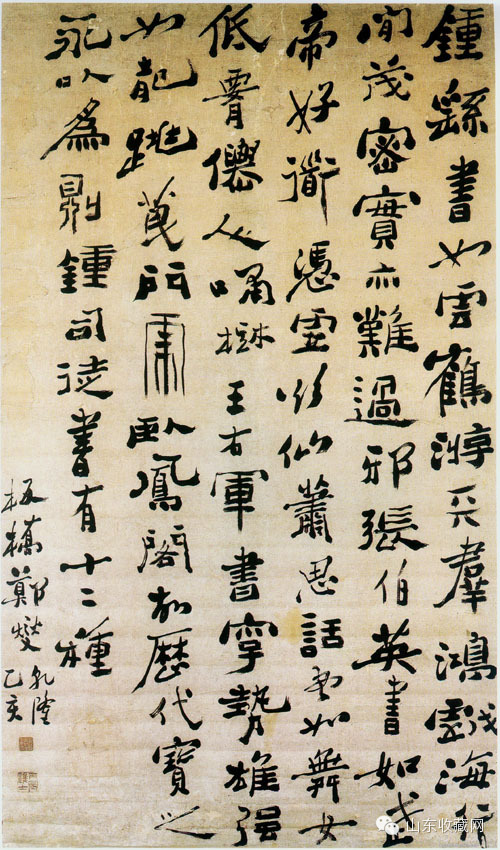 鍾繇書如雲鶴游天羣鴻戲海行
間茂密實亦難過邪張伯英書如武
帝好衟憑虛欲仙蕭思話書如舞女
低腰僊人嘯樹王右軍書字勢雄强
如龍跳天門虎臥鳳閣故歷代寶之
永以爲訓鍾司徒書有十二種
板橋鄭燮
乾隆乙亥
山东收藏网